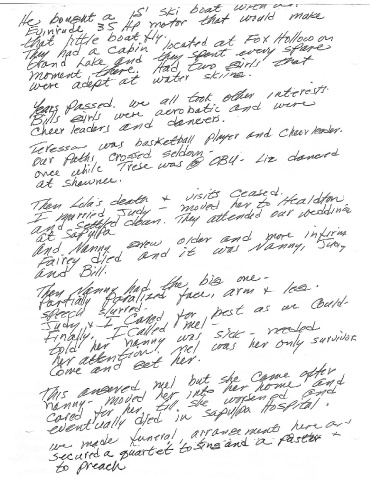 He bought a 15' ski boat with an
Evinrude 35 Hp motor that would make
that little boat fly.
They had a cabin located at Fox Hollow on
Grand Lake and they spent every spare
moment there. Had two girls that
were adept at water skiing.
Years Passed. we all took other interests
Bills girls were acrobatic and were
Cheer leaders and dancers.
Teressa was basketball player and Cheer leader.
Our Paths, Crossed seldom,
once while Trese was @ OBU - Liz danced
at Shawnee.
Then Lola's death & visits ceased.
I married Judy - moved her to Healdton
and settled down. They attended our wedding
at Sapulpa
and Nanny grew older and more infirm
Fairey died and it was Nanny, Judy,
and Bill.
Then Nanny had the big one -
Partially Paralized face, arm & leg.
speech slurred.
Judy & I Cared for best as we Could.
Finally, I Called Mel -
told her Nanny was sick - needed
her attention, Mel was her only survivor.
Come and get her.
This angered Mel but she Came after
Nanny - moved her into her home and
Cared for her till she worsened and
eventually died in Sapulpa Hospital.
we made funeral, arrangements here
secured a quartet to sing and a Pastor
to preach